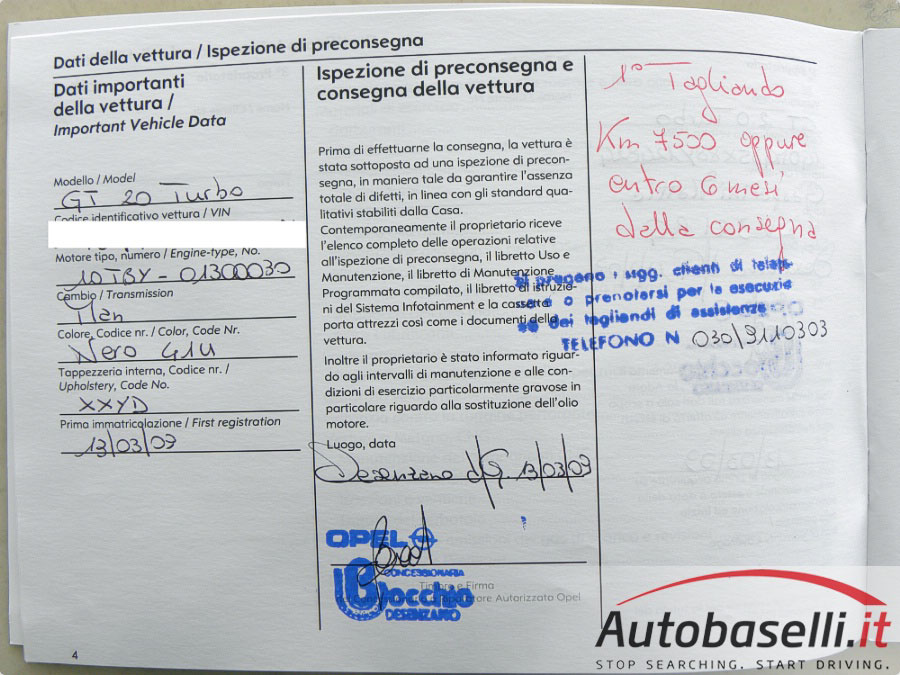 Dati della vettura / Ispezione di preconsegna
Dati importanti
della vettura /
Important Vehicle Data
Modello / Model
GT 20 Turbo
Codice identificativo vettura / VIN
Motore tipo, numero / Engine-type, No.
10TBY - 01300030
Cambio / Transmission
Man
Colore, Codice nr. / Color, Code Nr.
Nero G1U
Tappezzeria interna, Codice nr. /
Upholstery, Code No.
XXYD
Prima immatricolazione / First registration
13/03/09
4
Ispezione di preconsegna e
consegna della vettura
Prima di effettuarne la consegna, la vettura è
stata sottoposta ad una ispezione di precon-
segna, in maniera tale da garantire l'assenza
totale di difetti, in linea con gli standard qua-
litativi stabiliti dalla Casa.
Contemporaneamente il proprietario riceve
l'elenco completo delle operazioni relative
all'ispezione di preconsegna, il libretto Uso e
Manutenzione, il libretto di Manutenzione
Programmata compilato, il libretto di istruzio-
ni del Sistema Infotainment e la cassetta
porta attrezzi così come i documenti della
vettura.
Inoltre il proprietario è stato informato riguar-
do agli intervalli di manutenzione e alle con-
dizioni di esercizio particolarmente gravose in
particolare riguardo alla sostituzione dell'olio
motore.
Luogo, data
Desenzano d/G. 13/03/09
OPEL
CONCESSIONARIA
Bocchio
DESENZANO
Timbro e Firma
Autorizzato Opel
1° Tagliando
Km 7500 oppure
entro 6 mesi
dalla consegna
Si pregano i sigg. clienti di telefo-
o prenotarsi per la esecuzio
dei tagliandi di assistenza
TELEFONO N 030/9110303
Autobaselli.it
STOP SEARCHING. START DRIVING.